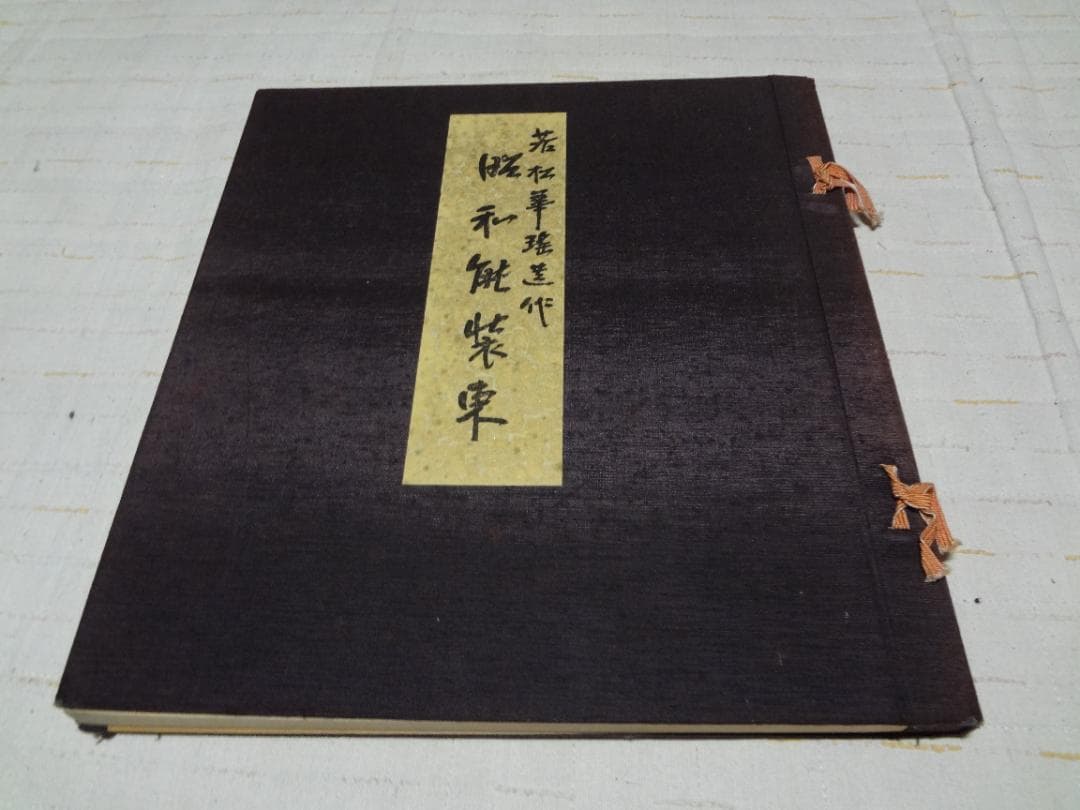 若松華瑤造作
昭和能装束